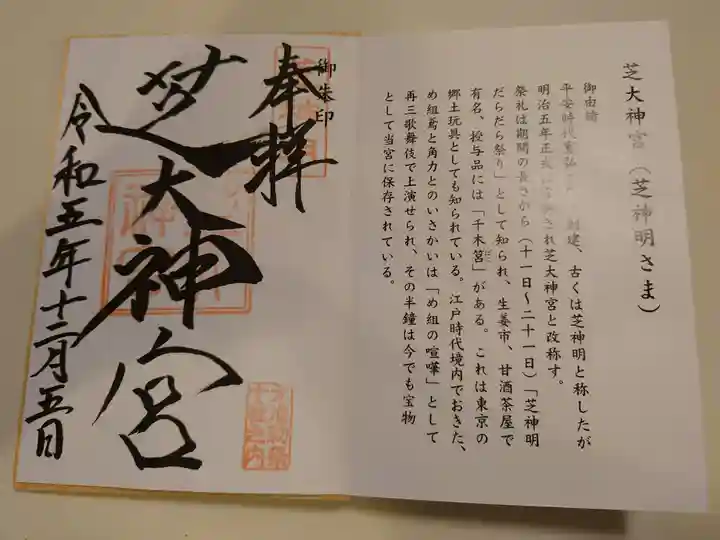 芝大神宮(芝神明さま)
御由緒
平安時代寛弘 創建、古くは芝神明と称したが
明治五年正式 され芝大神宮と改称す。
祭礼は期間の長さから(十一日~二十一日)「芝神明
だらだら祭り」として知られ、生姜市、甘酒茶屋で
有名、授与品には「千木筥」がある。これは東京の
郷土玩具としても知られている。江戸時代境内でおきた、
め組鳶と角力とのいさかいは「め組の喧嘩」として
再三歌舞伎で上演せられ、その半鐘は今でも宝物
として当宮に保存されている。
御朱印
奉拝
芝大神宮
令和五年十二月五日